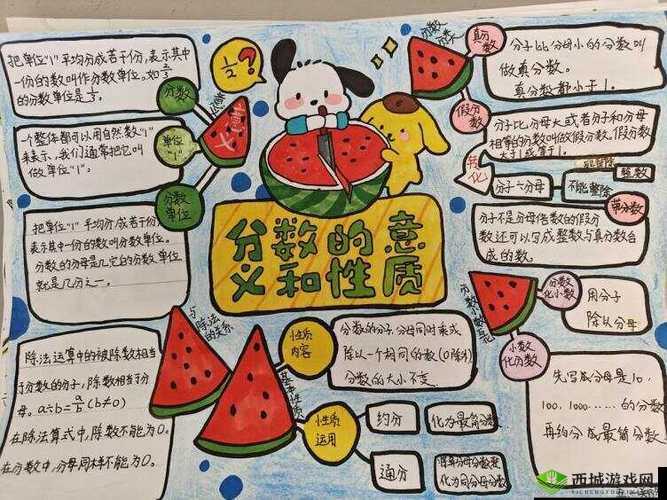 分数的意
义和性质
½?
把单位"1"平均分成若干份,表示其中
一份的数叫作分数单位。如
的分数单位是
分数
意义
一个整体都可以用自然数"1"
来表示,我们通常把它叫
做单位"1"。
单位
"1"
把单位"1"平均分成若干份
表示其中一份的数叫分数单位。
分数的分母是几,它的分数单位
就是几分之一。
分数
单位
与除法
的关系
除法运算中的被除数相当
于分数的分子,除数相当于分
母。a÷b=a/b(b≠0)
在除法算式中,除数不能为0。
在分数中,分母同样不能为0。
基本性质
性质
内容
分数的分子、分母同时乘或
除以一个相同的数(0除外)
分数的大小不变.
性质
运用
约分
化为最简分数
通分
化为同分母分数
真分
数
分子比分母小的分数叫
做真分数。
真分数都小于1.
假分
数
分子比分母大或者分子和分母
相等的分数叫做假分数。假分数
大于1或等于1.
转化
分子÷分母
能整除
整数
不能整除
带分数
分子不是分母倍数的假分
数还可以写成整数与真分数合
成的数。
分数
化小数
用分子
除以分母
小数
化分数
先写成分母是10,
100,1000……的分数
再约分成最简分数
西城游戏网
XICHENGYOUXIWANG